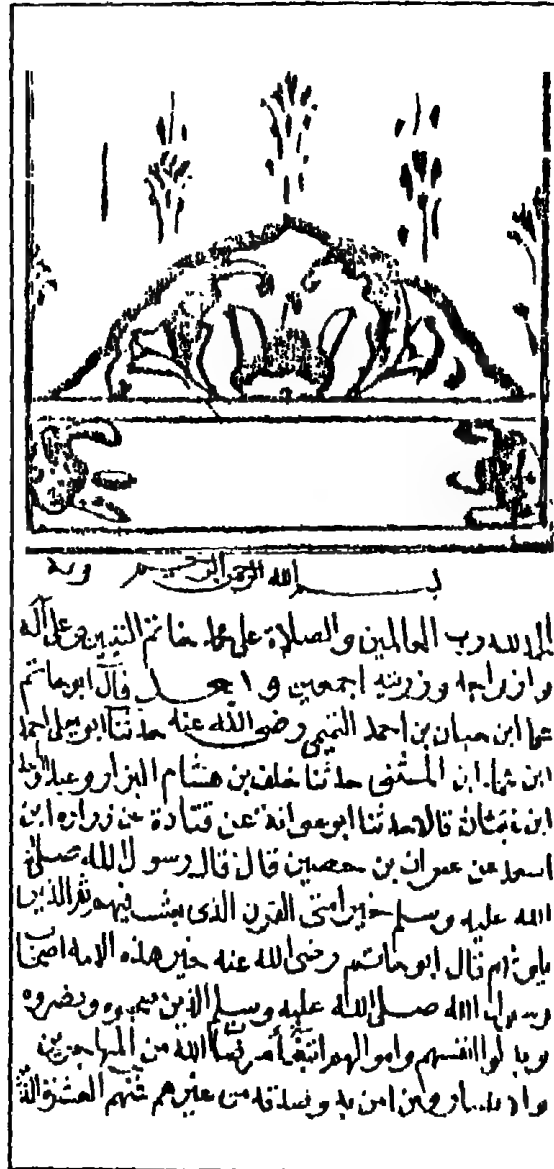 بسم الله الرحمن الرحيم وبه
الحمد لله رب العالمين والصلاة على محمد خاتم النبيين وعلى آله
وازواجه وذريته اجمعين و ا بعد قال ابو حاتم
محمد ابن حبان بن احمد التميمي رضى الله عنه حدثنا ابو يعلى احمد
ابن المثنى حدثنا خلف بن هشام البزار وعبد الواحد
ابن غياث قالا حدثنا ابو عوانة عن قتادة عن زرارة ابن
عن عمران بن حصين قال قال رسول الله صلى
الله عليه وسلم خير امتى القرن الذى بعثت فيهم ثم الذين
يلونهم قال ابو حاتم رضى الله عنه خير هذه الامة اصحاب
رسول الله صلى الله عليه وسلم الذين صحبوه ونصروه
وبذلوا انفسهم واموالهم ابتغاء مرضات الله من المهاجرين
والانصار ومن امن به وصدقه من غيرهم العشرة